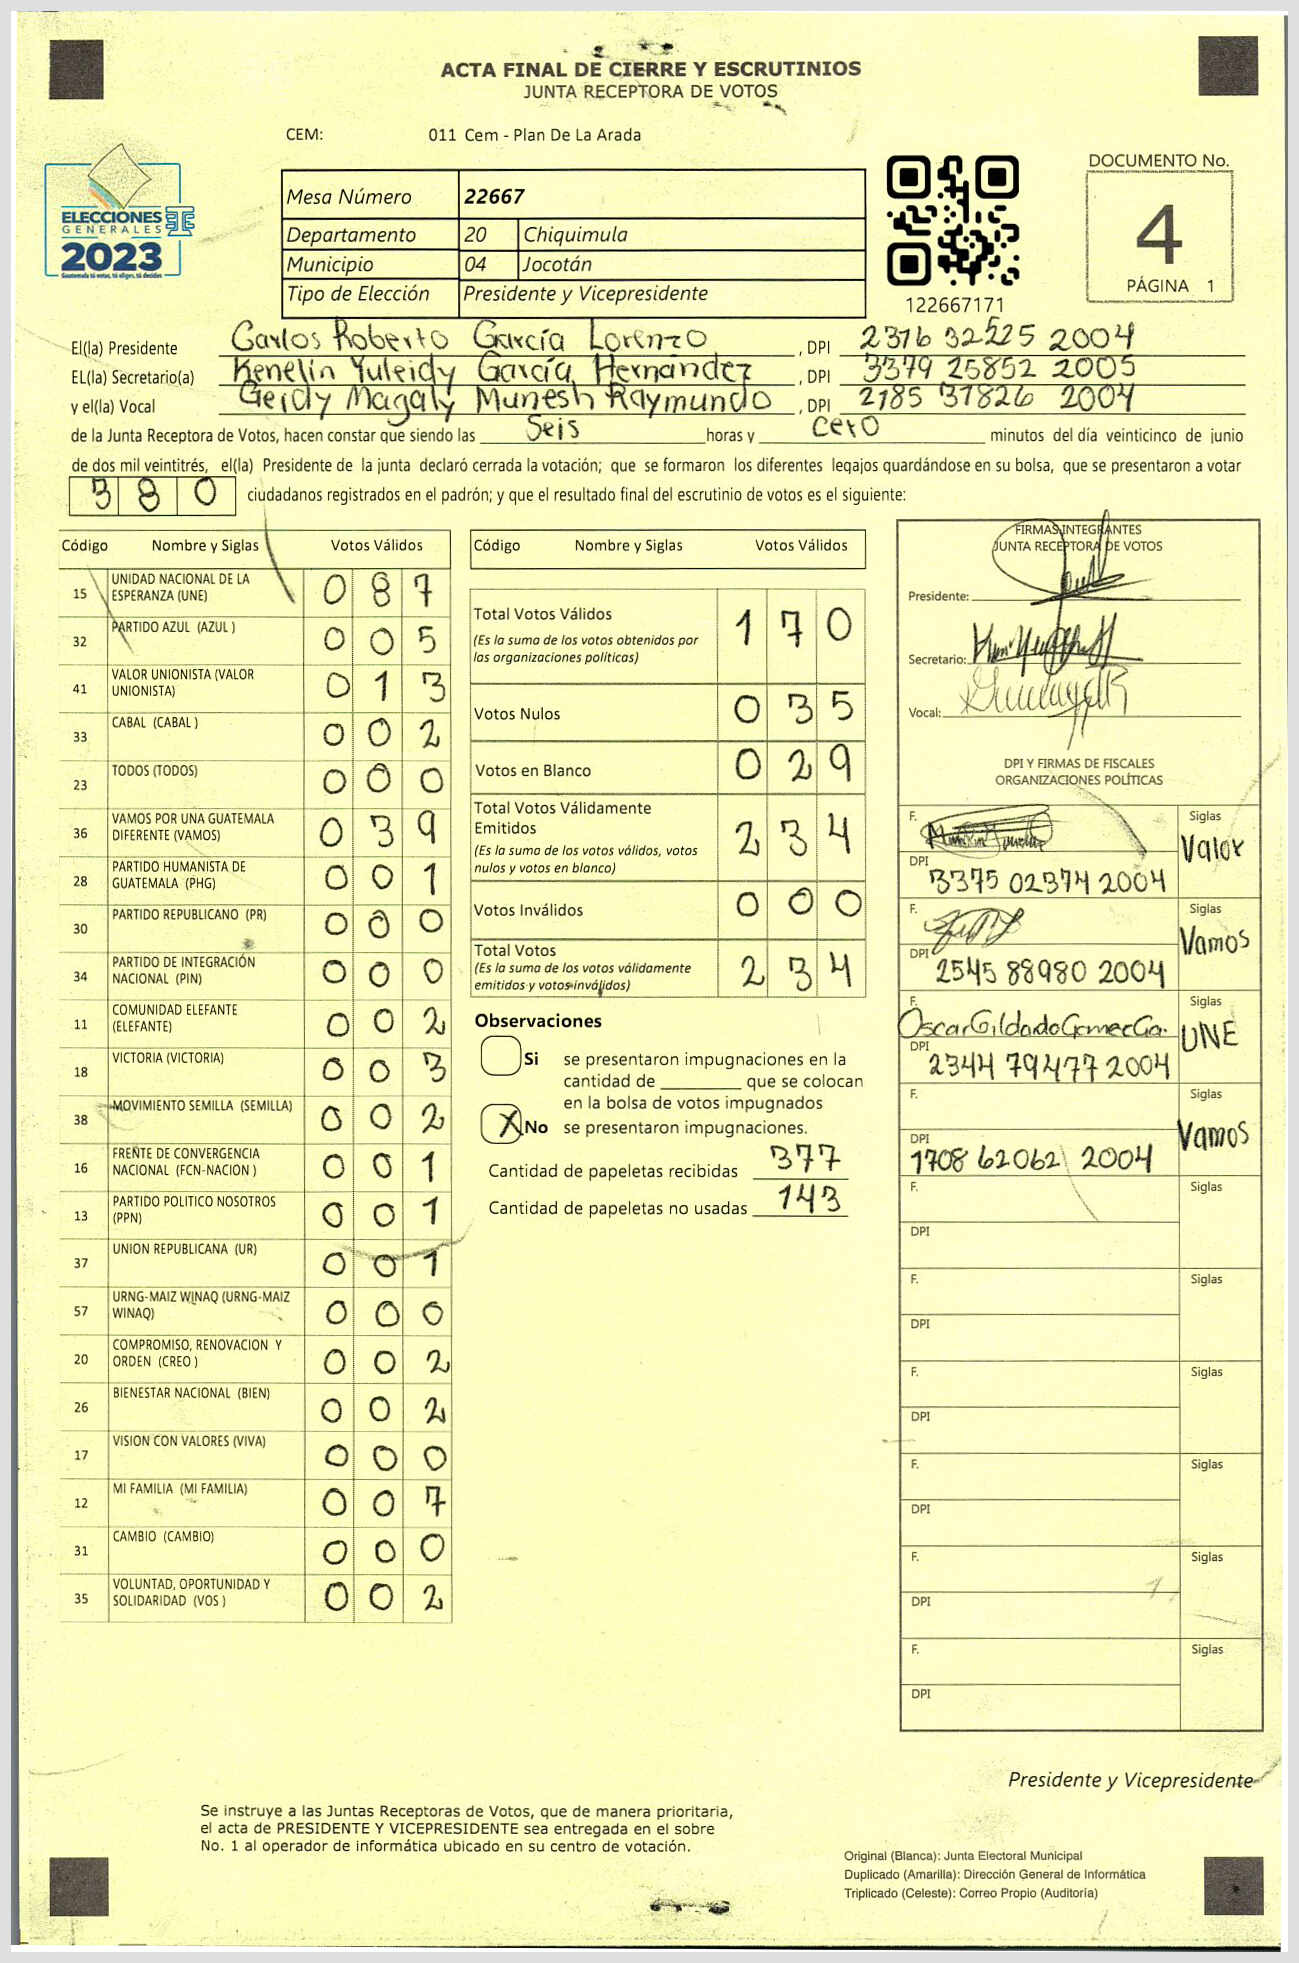 ACTA FINAL DE CIERRE Y ESCRUTINIOS
JUNTA RECEPTORA DE VOTOS
CEM: 011 Cem - Plan De La Arada
ELECCIONES
GENERALES
2023
Guatemala tú votas, tú eliges, tú decides
Mesa Número 22667
Departamento 20 Chiquimula
Municipio 04 Jocotán
Tipo de Elección Presidente y Vicepresidente
122667171
DOCUMENTO No.
4
PÁGINA 1
El(la) Presidente Carlos Roberto García Lorenzo, DPI 2376 32525 2004
EL(la) Secretario(a) Kenelin Yuleidy García Hernández, DPI 3379 25852 2005
y el(la) Vocal Geidy Magaly Munesh Raymundo, DPI 2185 31826 2004
de la Junta Receptora de Votos, hacen constar que siendo las Seis horas y cero minutos del día veinticinco de junio
de dos mil veintitrés, el(la) Presidente de la junta declaró cerrada la votación; que se formaron los diferentes legajos guardándose en su bolsa, que se presentaron a votar
380 ciudadanos registrados en el padrón; y que el resultado final del escrutinio de votos es el siguiente:
Código Nombre y Siglas Votos Válidos
15 UNIDAD NACIONAL DE LA ESPERANZA (UNE) 087
32 PARTIDO AZUL (AZUL ) 005
41 VALOR UNIONISTA (VALOR UNIONISTA) 013
33 CABAL (CABAL ) 002
23 TODOS (TODOS) 000
36 VAMOS POR UNA GUATEMALA DIFERENTE (VAMOS) 039
28 PARTIDO HUMANISTA DE GUATEMALA (PHG) 001
30 PARTIDO REPUBLICANO (PR) 000
34 PARTIDO DE INTEGRACIÓN NACIONAL (PIN) 000
11 COMUNIDAD ELEFANTE (ELEFANTE) 002
18 VICTORIA (VICTORIA) 003
38 MOVIMIENTO SEMILLA (SEMILLA) 002
16 FRENTE DE CONVERGENCIA NACIONAL (FCN-NACION ) 001
13 PARTIDO POLITICO NOSOTROS (PPN) 001
37 UNION REPUBLICANA (UR) 001
57 URNG-MAIZ WINAQ (URNG-MAIZ WINAQ) 000
20 COMPROMISO, RENOVACION Y ORDEN (CREO ) 002
26 BIENESTAR NACIONAL (BIEN) 002
17 VISION CON VALORES (VIVA) 000
12 MI FAMILIA (MI FAMILIA) 007
31 CAMBIO (CAMBIO) 000
35 VOLUNTAD, OPORTUNIDAD Y SOLIDARIDAD (VOS ) 002
Código Nombre y Siglas Votos Válidos
Total Votos Válidos 170
(Es la suma de los votos obtenidos por
las organizaciones políticas)
Votos Nulos 035
Votos en Blanco 029
Total Votos Válidamente
Emitidos 234
(Es la suma de los votos válidos, votos
nulos y votos en blanco)
Votos Inválidos 000
Total Votos 234
(Es la suma de los votos válidamente
emitidos y votos inválidos)
Observaciones
Si se presentaron impugnaciones en la
cantidad de ________ que se colocan
en la bolsa de votos impugnados
X No se presentaron impugnaciones.
Cantidad de papeletas recibidas 377
Cantidad de papeletas no usadas 143
FIRMAS INTEGRANTES
JUNTA RECEPTORA DE VOTOS
Presidente:
Secretario:
Vocal:
DPI Y FIRMAS DE FISCALES
ORGANIZACIONES POLÍTICAS
F. Siglas
Valor
DPI
3375 02374 2004
F. Siglas
Vamos
DPI
2545 88980 2004
F. Siglas
Oscar Gildardo Gomez Ga. UNE
DPI
2344 79477 2004
F. Siglas
Vamos
DPI
1708 62062 2004
F. Siglas
DPI
F. Siglas
DPI
F. Siglas
DPI
F. Siglas
DPI
F. Siglas
DPI
F. Siglas
DPI
Presidente y Vicepresidente
Se instruye a las Juntas Receptoras de Votos, que de manera prioritaria,
el acta de PRESIDENTE Y VICEPRESIDENTE sea entregada en el sobre
No. 1 al operador de informática ubicado en su centro de votación.
Original (Blanca): Junta Electoral Municipal
Duplicado (Amarilla): Dirección General de Informática
Triplicado (Celeste): Correo Propio (Auditoría)